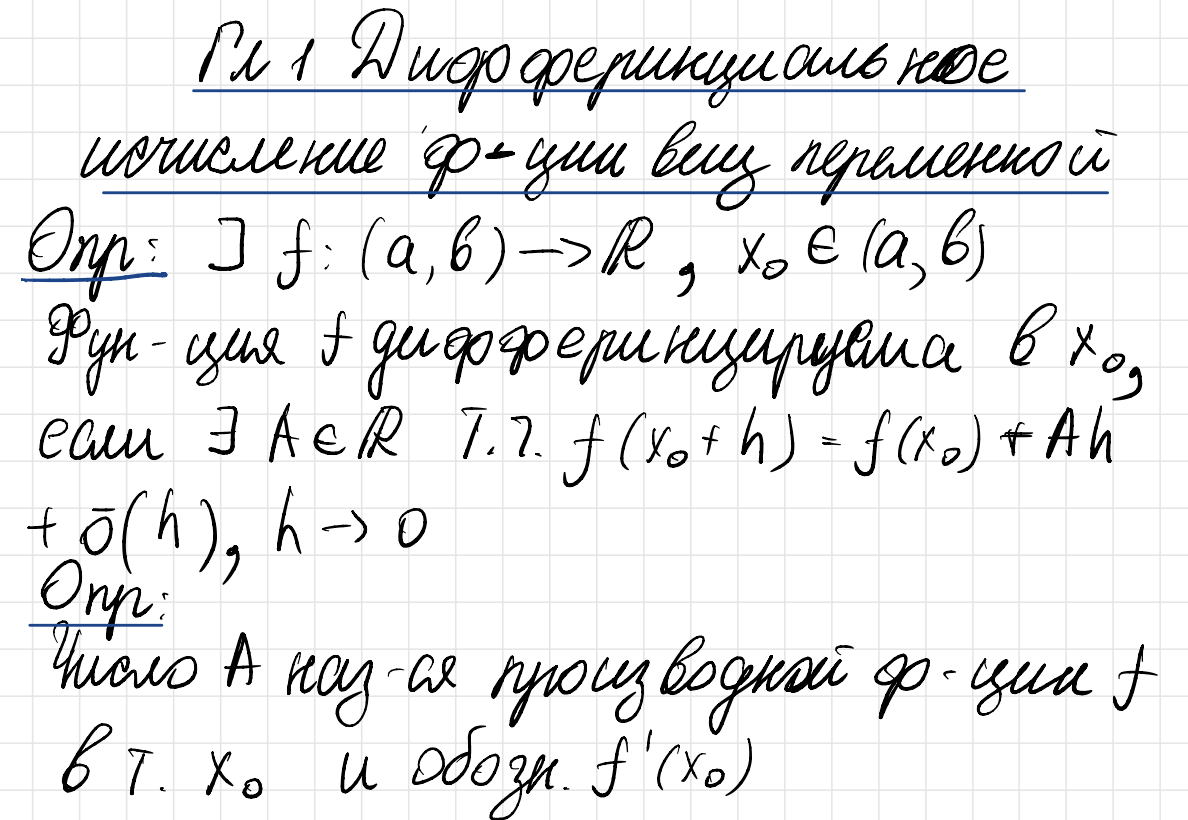 Гл 1 Дифференциальное
исчисление ф-ции вещ переменной
Опр: ∃ f: (a, b) → ℝ, x₀ ∈ (a, b)
Фун-ция f дифферинцируема в x₀,
если ∃ A ∈ ℝ т.т. f(x₀ + h) = f(x₀) + Ah
+ ō(h), h → 0
Опр:
Число A наз-ся производной ф-ции f
в т. x₀ и обозн. f'(x₀)